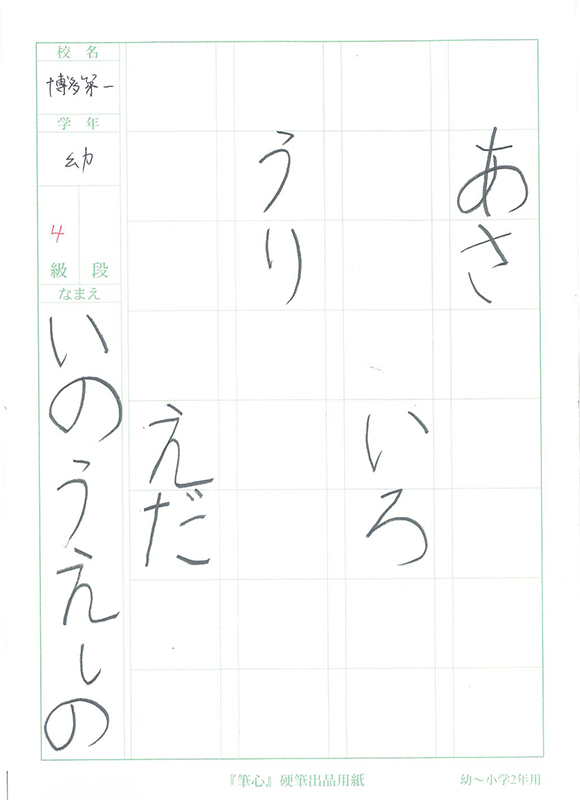 あさ
いろ
うり
えだ
校名
博多第一
学年
幼
4
級 段
なまえ
いのうえしの
『筆心』硬筆出品用紙
幼～小学2年用